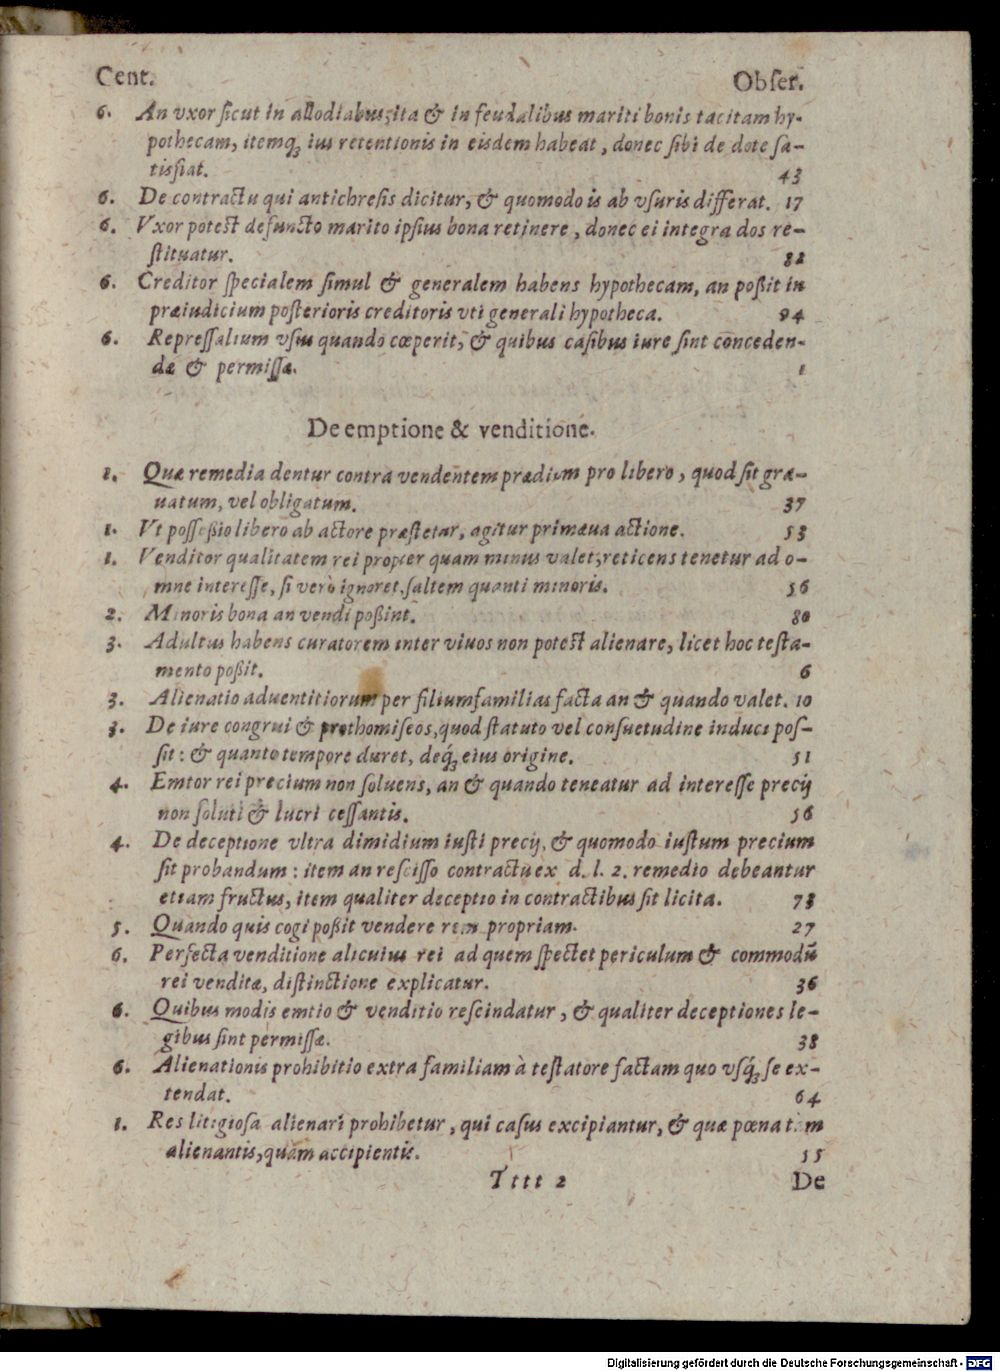 Cent. Obser.
6. An vxor sicut in allodiabus, ita & in feudalibus mariti bonis tacitam hy-
pothecam, itemq́; ius retentionis in eisdem habeat, donec sibi de dote sa-
tisfiat. 43
6. De contractu qui antichresis dicitur, & quomodo is ab vsuris differat. 17
6. Vxor potest defuncto marito ipsius bona retinere, donec ei integra dos re-
stituatur. 82
6. Creditor specialem simul & generalem habens hypothecam, an poßit in
præiudicium posterioris creditoris vti generali hypotheca. 94
6. Repressalium vsus quando cœperit, & quibus casibus iure sint conceden-
dæ & permissæ. 1
De emptione & venditione.
1. Quæ remedia dentur contra vendentem prædium pro libero, quod sit græ-
uatum, vel obligatum. 37
1. Vt possessio libero ab actore præstetar, agitur primæua actione. 53
1. Venditor qualitatem rei propter quam minus valet, reticens tenetur ad o-
mne interesse, si verò ignoret, saltem quanti minoris. 56
2. Minoris bona an vendi poßint. 80
3. Adultus habens curatorem inter viuos non potest alienare, licet hoc testa-
mento poßit. 6
3. Alienatio aduentitiorum per filiumfamilias facta an & quando valet. 10
3. De iure congrui & prothomiseos, quod statuto vel consuetudine induci pos-
sit: & quanto tempore duret, deq́; eius origine. 51
4. Emtor rei precium non soluens, an & quando teneatur ad interesse precij
non soluti & lucri cessantis. 56
4. De deceptione vltra dimidium iusti precij, & quomodo iustum precium
sit probandum: item an rescisso contractu ex d. l. 2. remedio debeantur
etiam fructus, item qualiter deceptio in contractibus sit licita. 73
5. Quando quis cogi poßit vendere rem propriam. 27
6. Perfecta venditione alicuius rei ad quem spectet periculum & commodũ
rei venditæ, distinctione explicatur. 36
6. Quibus modis emtio & venditio rescindatur, & qualiter deceptiones le-
gibus sint permissæ. 38
6. Alienationis prohibitio extra familiam à testatore factam quo vsq́; se ex-
tendat. 64
1. Res litigiosa alienari prohibetur, qui casus excipiantur, & quæ pœna tàm
alienantis, quàm accipientis. 55
Tttt 2 De
Digitalisierung gefördert durch die Deutsche Forschungsgemeinschaft - DFG